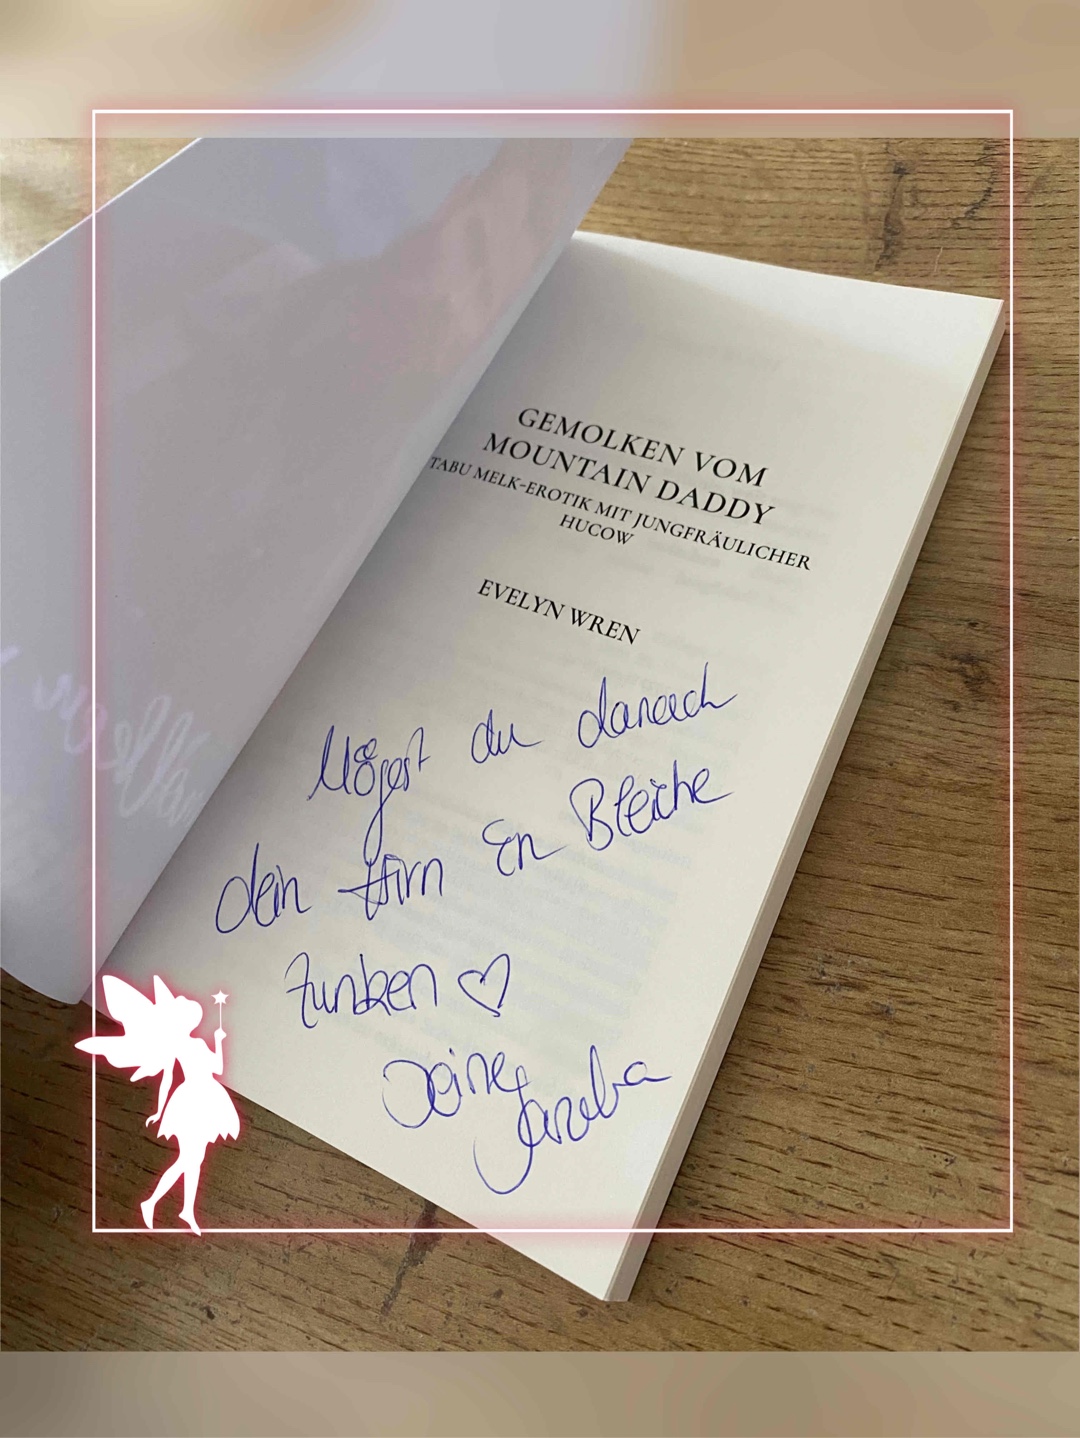 GEMOLKEN VOM
MOUNTAIN DADDY
TABU MELK-EROTIK MIT JUNGFRÄULICHER
HUCOW
EVELYN WREN
Mögest du danach
dein Hirn in Bleiche
tunken ♡
Deine